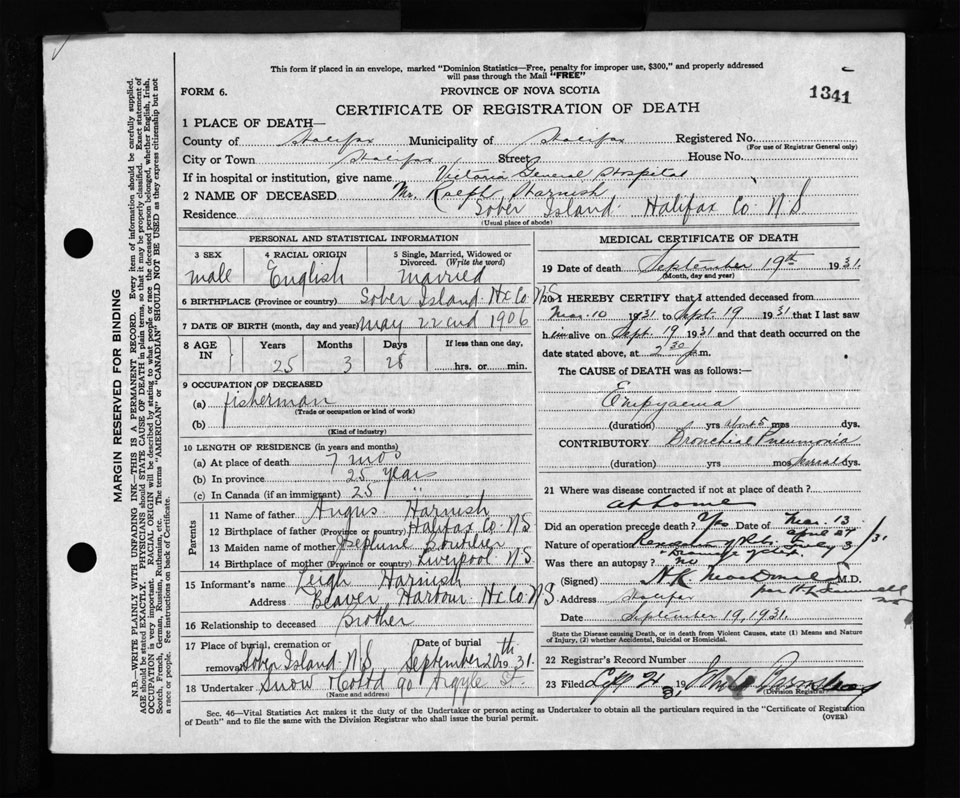 This form if placed in an envelope, marked "Dominion Statistics—Free, penalty for improper use, $300," and properly addressed
will pass through the Mail "FREE"
FORM 6.
PROVINCE OF NOVA SCOTIA
1341
CERTIFICATE OF REGISTRATION OF DEATH
1 PLACE OF DEATH—
County of Halifax Municipality of Halifax Registered No.
(For use of Registrar General only)
City or Town Halifax Street House No.
If in hospital or institution, give name Victoria General Hospital
2 NAME OF DECEASED Mr. Ralph Harnish
Residence Sober Island Halifax Co N S
(Usual place of abode)
PERSONAL AND STATISTICAL INFORMATION
3 SEX
male
4 RACIAL ORIGIN
English
5 Single, Married, Widowed or
Divorced. (Write the word)
married
6 BIRTHPLACE (Province or country) Sober Island Hx Co. N S
7 DATE OF BIRTH (month, day and year) may 22nd 1906
8 AGE IN
Years 25
Months 3
Days 28
If less than one day,
hrs. or min.
9 OCCUPATION OF DECEASED
(a) fisherman
(Trade or occupation or kind of work)
(b)
(Kind of industry)
10 LENGTH OF RESIDENCE (in years and months)
(a) At place of death 7 mos
(b) In province 25 years
(c) In Canada (if an immigrant) 25 "
Parents
11 Name of father Angus Harnish
12 Birthplace of father (Province or country) Halifax Co N S
13 Maiden name of mother Boutilier
14 Birthplace of mother (Province or country) Liverpool N S.
15 Informant's name Leigh Harnish
Address Beaver Harbour Hx Co. N S
16 Relationship to deceased Brother
17 Place of burial, cremation or
removal Sober Island N S
Date of burial
September 20th 1931.
18 Undertaker Snow Co Ltd 90 Argyle St.
(Name and address)
MEDICAL CERTIFICATE OF DEATH
19 Date of death September 19th 1931.
(Month, day and year)
20 I HEREBY CERTIFY that I attended deceased from
Mar. 10 1931 to Sept. 19 1931 that I last saw
him alive on Sept. 19 1931 and that death occurred on the
date stated above, at 2 30 p.m.
The CAUSE of DEATH was as follows:—
Empyaema
(duration) yrs about 5 mos dys.
CONTRIBUTORY Bronchial Pneumonia
(duration) yrs mos several dys.
21 Where was disease contracted if not at place of death?
at home
Did an operation precede death? Yes Date of Mar. 13
April 27
Nature of operation Resection of Rib July 3 /31
Was there an autopsy? no
(Signed) N.K. MacDonald M.D.
Address Halifax
Date September 19, 1931.
State the Disease causing Death, or in death from Violent Causes, state (1) Means and Nature
of Injury, (2) whether Accidental, Suicidal or Homicidal.
22 Registrar's Record Number
23 Filed 19 31
(Division Registrar)
Sec. 46—Vital Statistics Act makes it the duty of the Undertaker or person acting as Undertaker to obtain all the particulars required in the "Certificate of Registration
of Death" and to file the same with the Division Registrar who shall issue the burial permit.
(OVER)
MARGIN RESERVED FOR BINDING
N.B.—WRITE PLAINLY WITH UNFADING INK—THIS IS A PERMANENT RECORD. Every item of information should be carefully supplied.
AGE should be stated EXACTLY. PHYSICIANS should STATE CAUSE OF DEATH in plain terms, so that it may be properly classified. Exact statement of
OCCUPATION is very important. RACIAL ORIGIN will be described by stating to what people or race the deceased person belonged, whether English, Irish,
Scotch, French, German, Russian, Ruthenian, etc. The terms "AMERICAN" or "CANADIAN" SHOULD NOT BE USED as they express citizenship but not
a race or people. See instructions on back of Certificate.